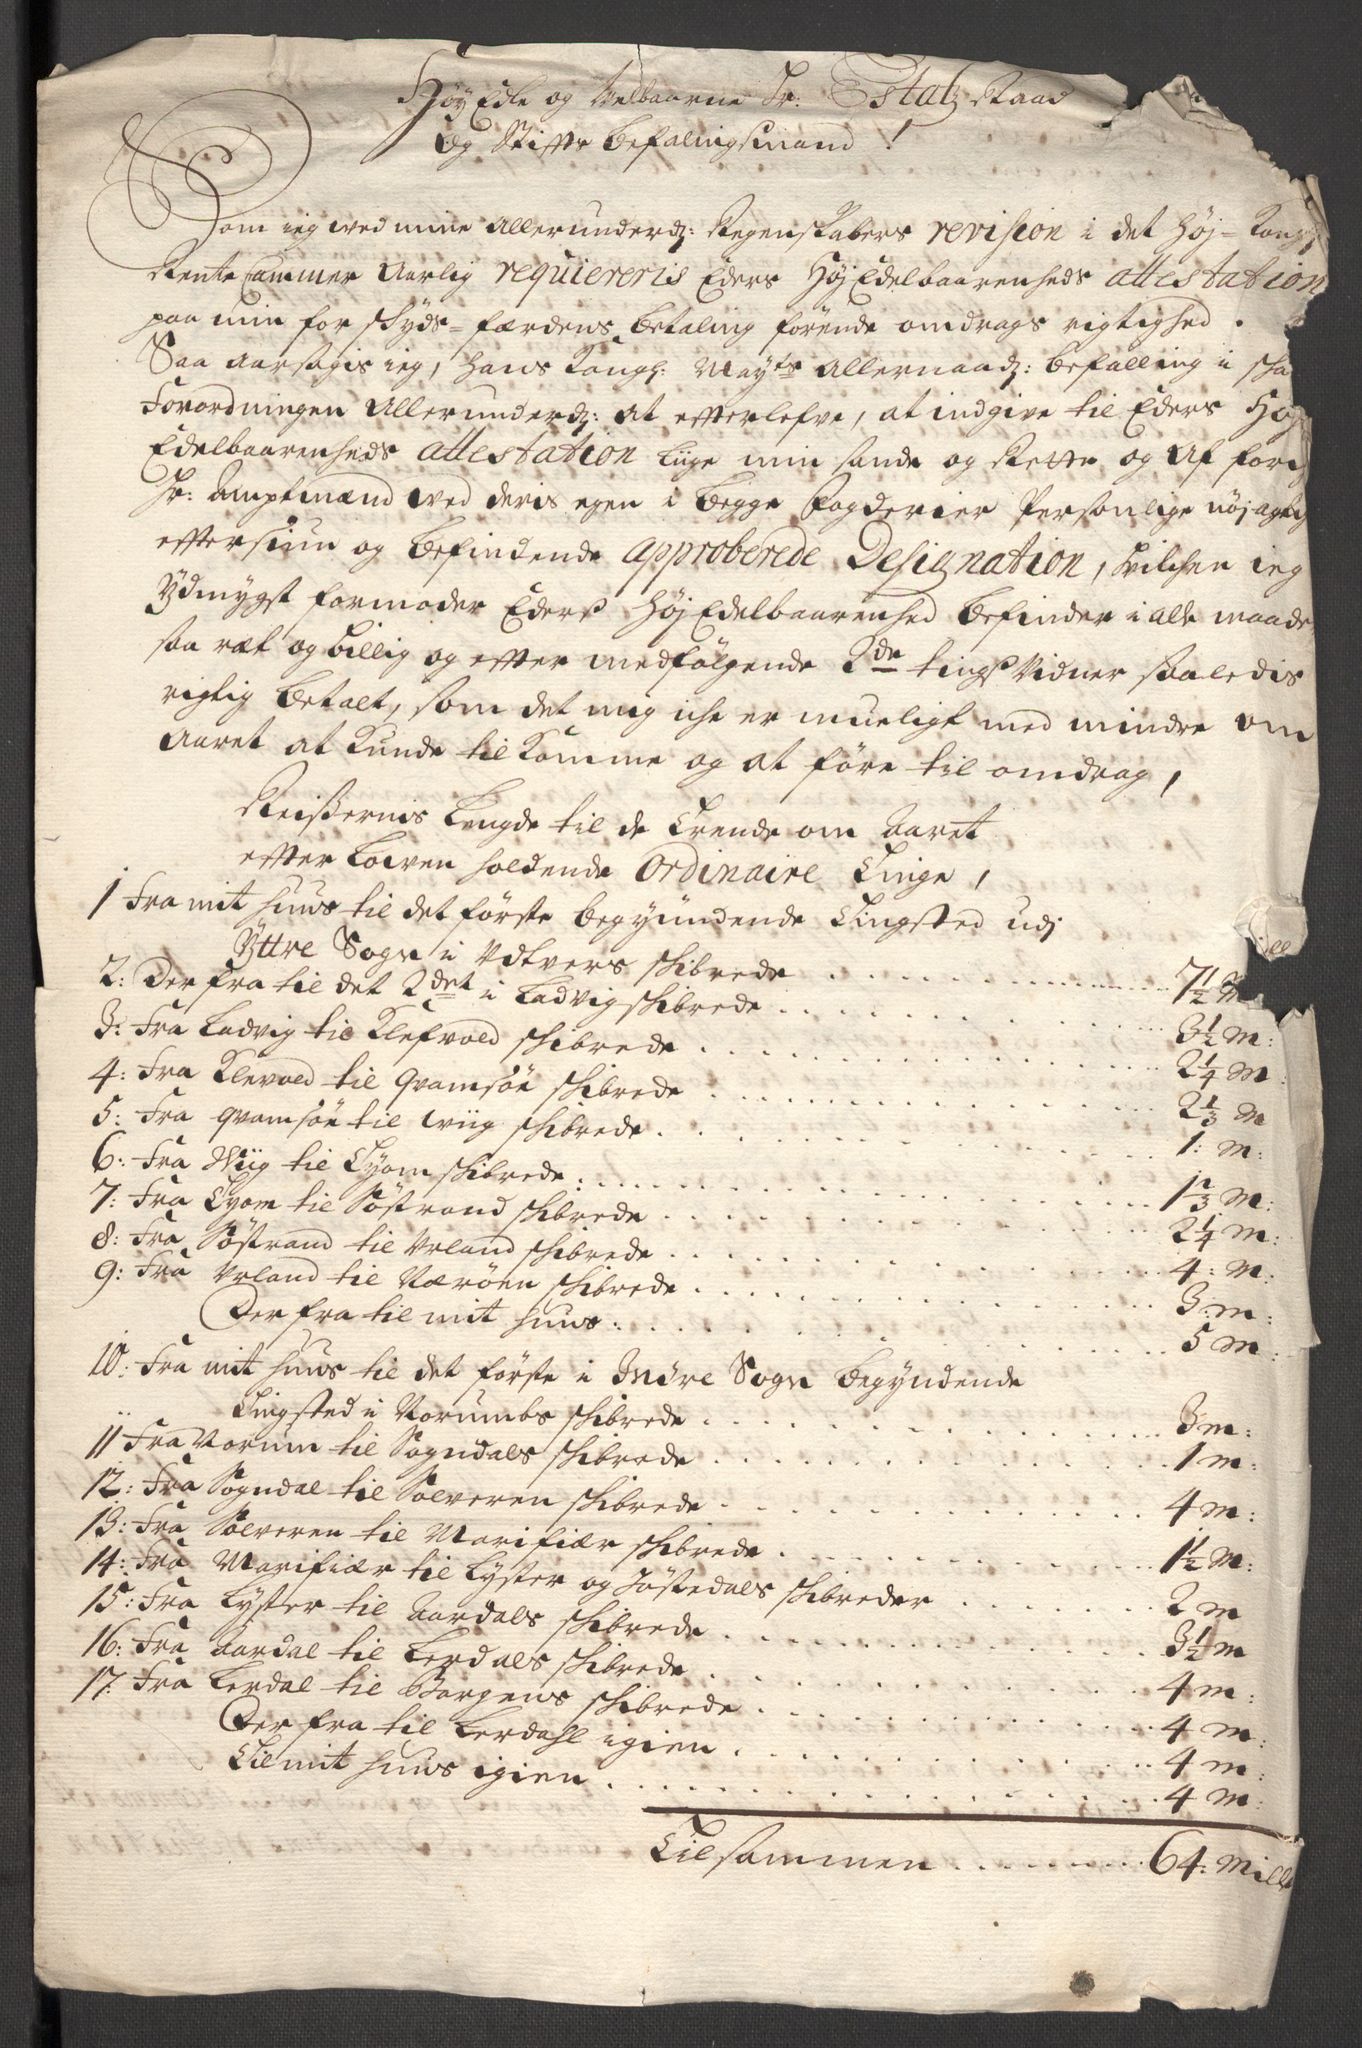 Høy Edle og Velbaarne Hr: Estatz Raad
Og Stiffts Befalingsmand !
Som ieg wed mine allerunderd: Regenskabers revision i det Høj- Kong
Rente Cammer Aarlig requiereris Eders HøjEdelbaarenheds attestation
paa min for skyds-færdens betaling førende omdrags rigtighed .
Saa aarsagis ieg, hans Kongl: Mayts allernaad: befalling i
Forordningen allerunderd: at efterlefve, at indgive til Eders Høj
Edelbaarenheds attestation liige min sande og Rette og af
Hr: Amptmænd wed deris egen i begge Fogderier Personlige nøjagtig
eftersiun og befindende approberede Designation, hvilchen ieg
Ydmygst formoder Eders HøjEdelbaarenhed befinder i alle maade
saa ræt og billig og efter medfølgende 2de tings Vidner saaledis
rigtig betalt, som det mig iche er mueligt med mindre om
Aaret at kunde til komme og at føre til omdrag,
Reisernis Lengde til de trende om Aaret
efter Lowen holdende Ordinaire Tinge,
1 Fra mit huus til det første begyündende Tingsted udj
Yttre Sogn i Udtvers skibrede . . . 7 1/2 M
2: Der fra til det 2det i Ladvig skibrede . . . 3 1/2 M:
3: Fra Ladvig til Klefvold skibrede . . . 2 1/4 M
4: Fra Klevold til Qvamsøe skibrede . . . 2 1/3 M
5: Fra Qvamsøe til Wiig skibrede . . . 1: M:
6: Fra Wiig til Tyom skibrede . . . 1 2/3 M:
7: Fra Tyom til Søstrand skibrede . . . 2 1/4 M:
8: Fra Søstrand til Urland skibrede . . . 4: M:
9: Fra Urland til Nærøen skibrede . . . 3: m:
Der fra til mit huus . . . 5 M:
10: Fra mit huus til det første i Indre Sogn begyndende
Tingsted i Norumbs skibrede . . . 3 m:
11 Fra Norum til Sogndals skibrede . . . 1 m:
12: Fra Sogndal til Solveren skibrede . . . 4 m:
13: Fra Solveren til Marifiær skibrede . . . 1 1/2 M:
14: Fra Marifiær til Lyster og Jostedals skibreder . . . 2 m
15: Fra Lyster til Aardals skibrede . . . 3 1/2 m
16: Fra Aardal til Lerdals skibrede . . . 4 m:
17: Fra Lerdal til Borgens skibrede . . . 4 m:
Der fra til Lerdahl igien . . . 4 m:
Til mit huus igien . . . 4 m:
Tilsammen . . . 64: Mill